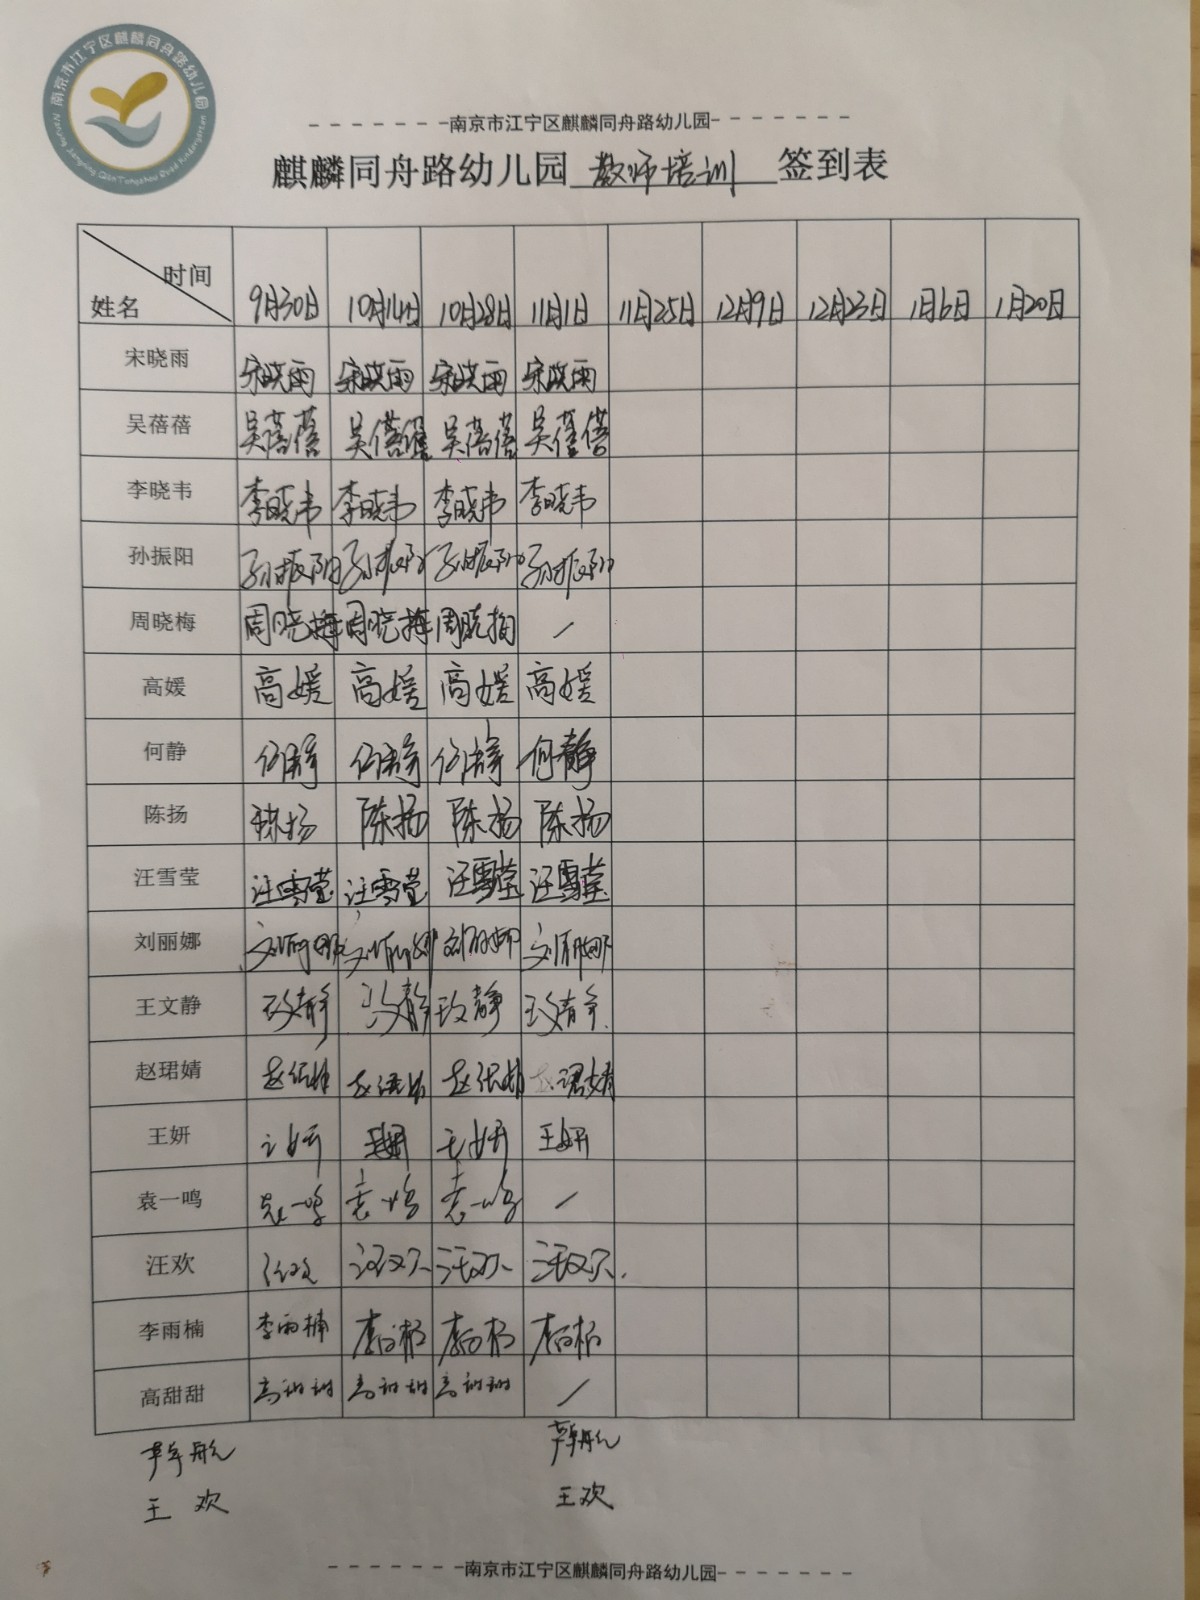 南京市江宁区麒麟同舟路幼儿园
Nanjing Jiangning Qilin Tongzhou Road Kindergarten
-南京市江宁区麒麟同舟路幼儿园-
麒麟同舟路幼儿园 教师培训 签到表
时间
姓名 9月30日 10月14日 10月28日 11月1日 11月25日 12月9日 12月23日 1月6日 1月20日
宋晓雨 宋晓雨 宋晓雨 宋晓雨 宋晓雨
吴蓓蓓 吴蓓蓓 吴蓓蓓 吴蓓蓓 吴蓓蓓
李晓韦 李晓韦 李晓韦 李晓韦 李晓韦
孙振阳 孙振阳 孙振阳 孙振阳 孙振阳
周晓梅 周晓梅 周晓梅 周晓梅 /
高媛 高媛 高媛 高媛 高媛
何静 何静 何静 何静 何静
陈扬 陈扬 陈扬 陈扬 陈扬
汪雪莹 汪雪莹 汪雪莹 汪雪莹 汪雪莹
刘丽娜 刘丽娜 刘丽娜 刘丽娜 刘丽娜
王文静 王文静 王文静 王文静 王文静
赵珺婧 赵珺婧 赵珺婧 赵珺婧 赵珺婧
王妍 王妍 王妍 王妍 王妍
袁一鸣 袁一鸣 袁一鸣 袁一鸣 /
汪欢 汪欢 汪欢 汪欢 汪欢
李雨楠 李雨楠 李雨楠 李雨楠 李雨楠
高甜甜 高甜甜 高甜甜 高甜甜 /
王欢 王欢
-南京市江宁区麒麟同舟路幼儿园-